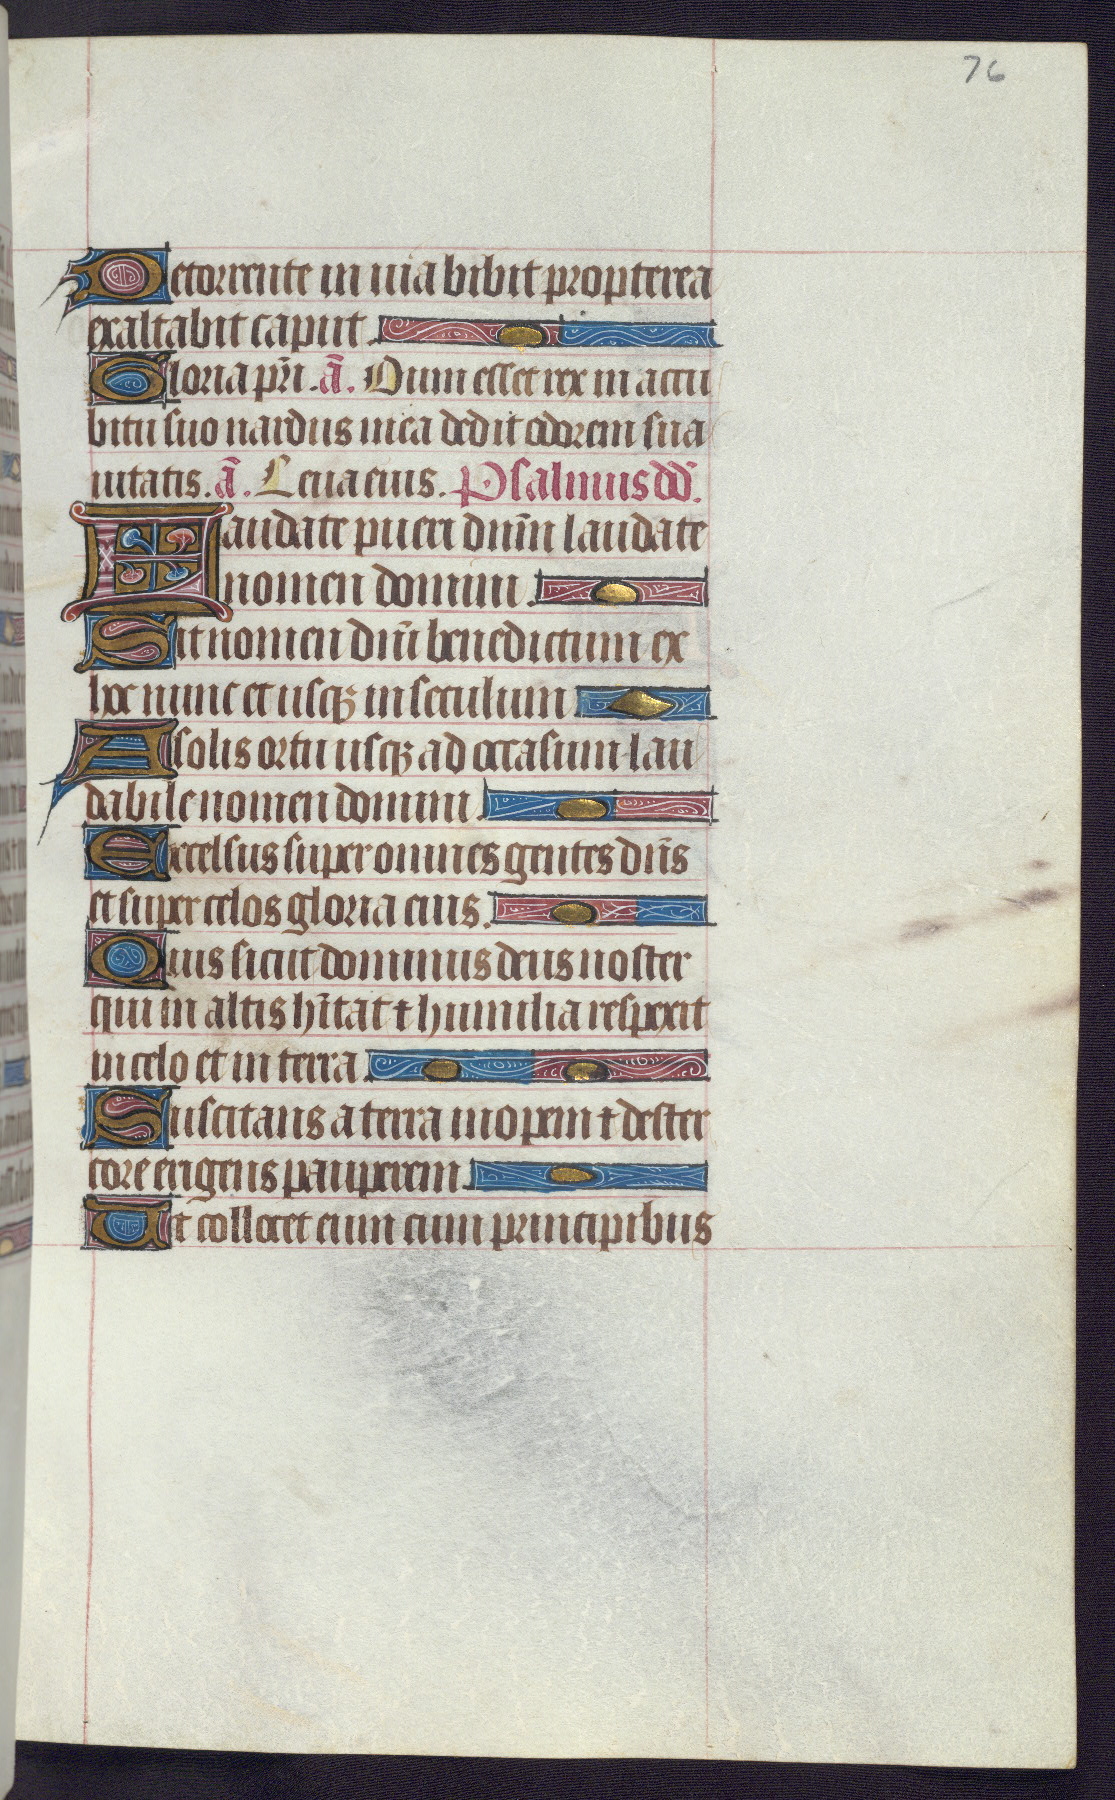 76
De torrente in uia bibit propterea
exaltabit caput.
Gloria pr̄i. a̅. Dum esset rex in accu
bitu suo nardus mea dedit odorem sua
uitatis. a̅. Leua eius. Psalmus dd̄.
Laudate pueri dn̄m laudate
nomen domini.
Sit nomen dn̄i benedictum ex
hoc nunc et usqꝫ in seculum
A solis ortu usqꝫ ad occasum lau
dabile nomen domini
Excelsus super omnes gentes dn̄s
et super celos gloria eius.
Quis sicut dominus deus noster
qui in altis hītat ⁊ humilia respexit
in celo et in terra
Suscitans a terra inopem ⁊ de ster
core erigens pauperem.
Ut collocet eum cum principibus